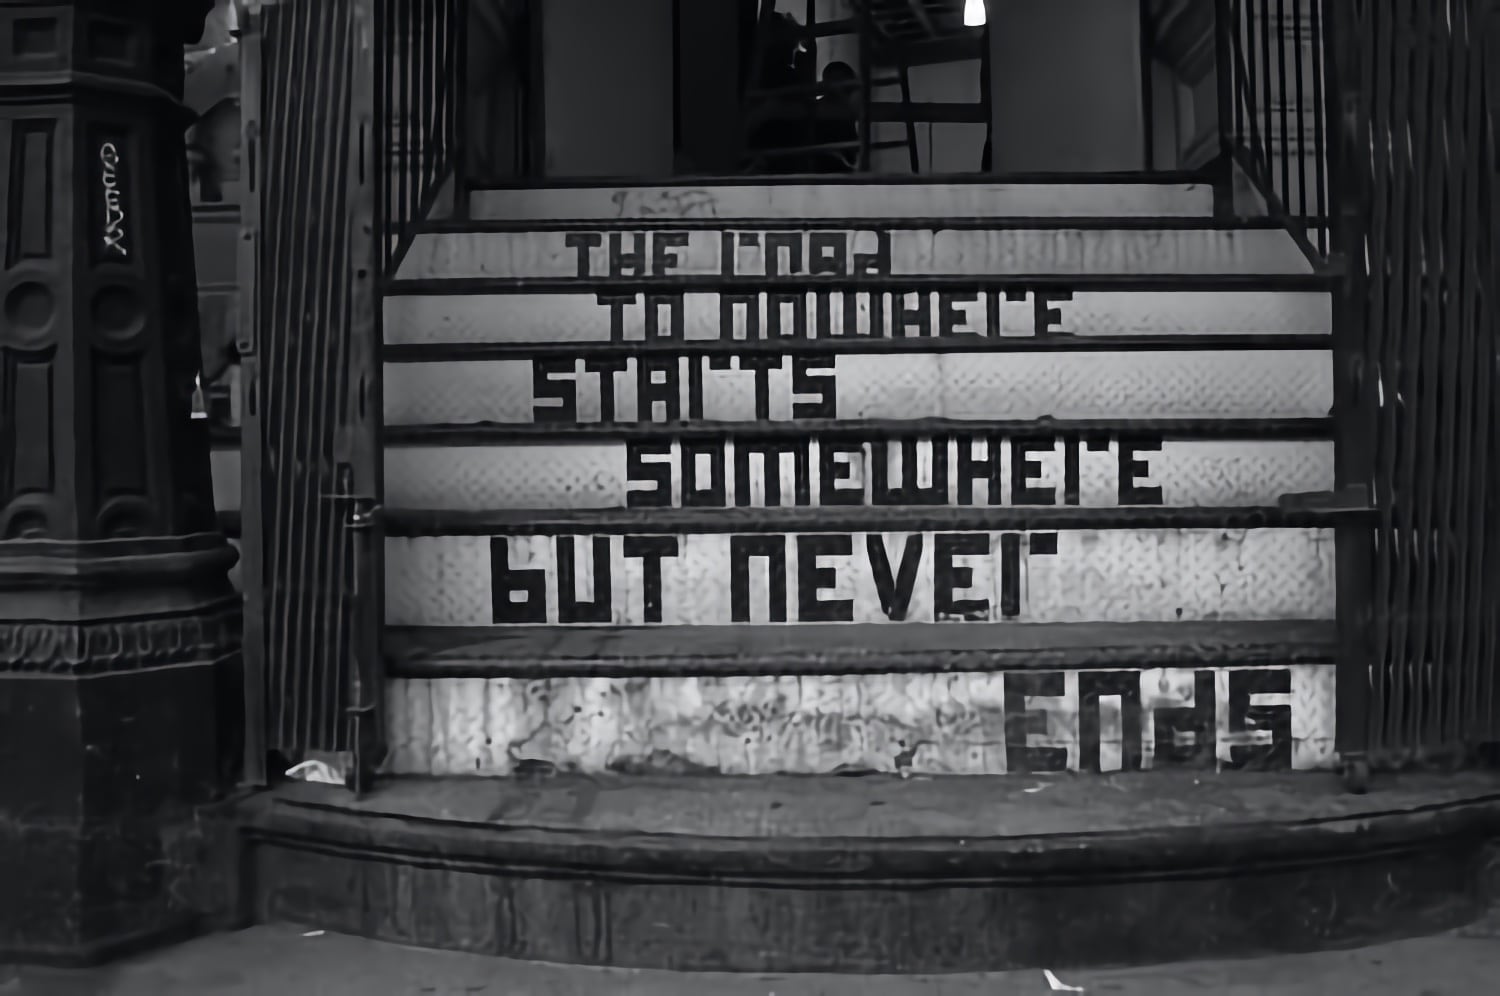 THE rOAd
TO nOWHErE
STArTS
SOMEWHErE
bUT nEVEr
EndS